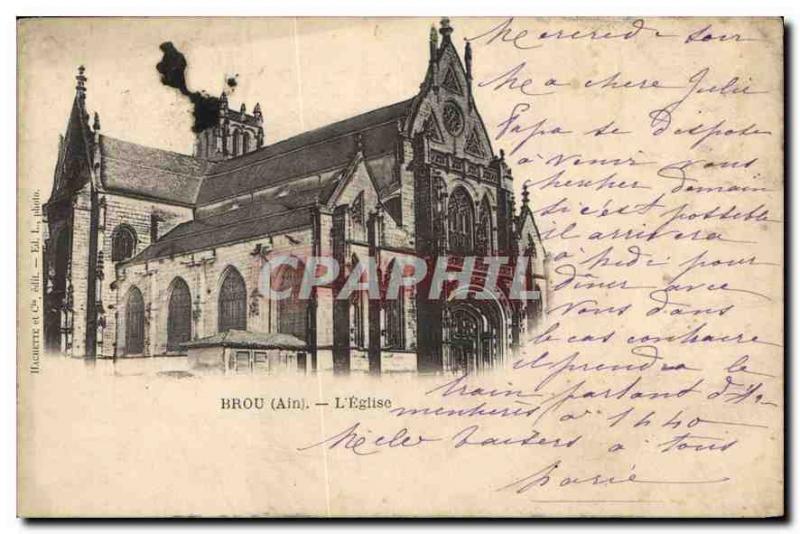 Mercredi soir
Ma chere Julie
Papa se dispose
à venir vous
chercher demain
si c'est possible
il arrivera
à midi pour
dîner avec
vous dans
le cas contraire
il prendra le
train partant d'A-
à 1h40
baisers à tous
HACHETTE et Cie, édit. — Ed. L., photo.
CPAPHIL
BROU (Ain). — L'Église